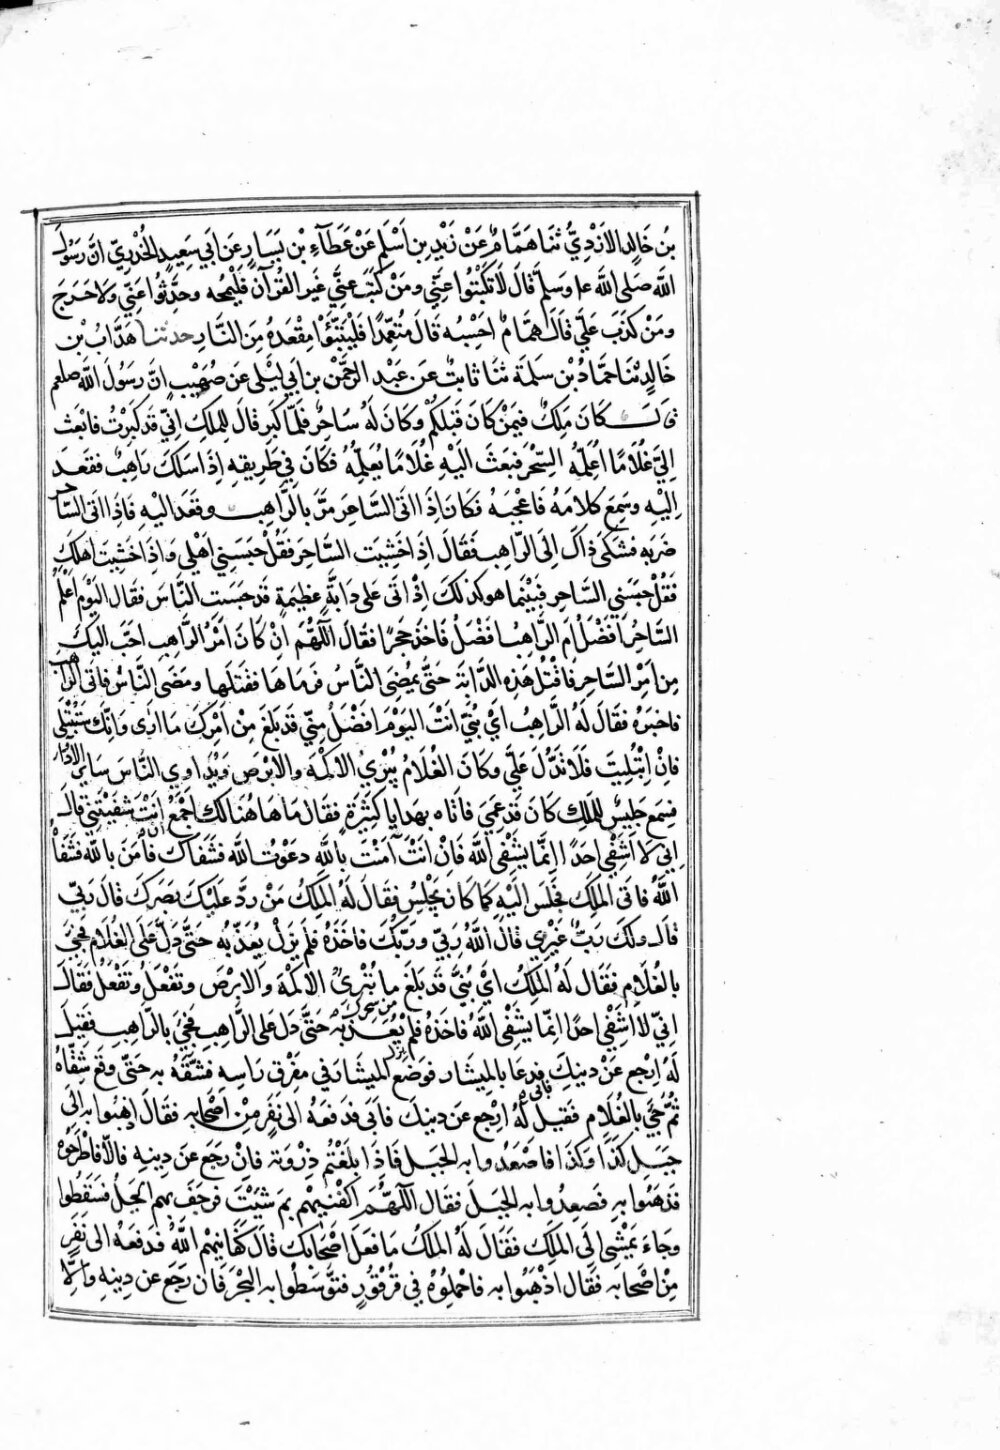 بْنِ خَالِدٍ الأَزْدِيُّ ثنَا هَمَّامٌ عَنْ زَيْدِ بنِ اَسْلَمَ عَنْ عَطَآءِ بْنِ يَسَارٍ عَنْ اَبِي سَعِيدٍ الخُدْرِيِّ اَنَّ رَسُولَ
اللّٰه صَلى اللّٰه علٖ وسَلم قَالَ لاَ تَكْتُبُوا عَنِّي ومَنْ كَتَبَ عنِّي غَيرَ القُرْآن فَلْيَمحه وحَدِّثوُا عَنِّي ولا حَرَجَ
ومَنْ كَذَبَ عَلَيَّ قَالَ هَمَّامٌ احْسِبُه قَالَ مُتَعَمِّدًا فَليَتَبَوَّأْ مقْعَدهُ مِنَ النَّارِ حدثنا هَدَّابُ بْن
خَالِدٍ ثنَا حمَّادُ بْن سَلمَة ثنَا ثابتٌ عَن عَبْدِ الرَّحمٰنِ بن اَبي لَيْلى عَن صُهَيْبٍ اَنَّ رسُولَ اللّٰه صلعم
قَالَ كَانَ مَلِكٌ فِيمَنْ كَانَ قَبْلكُمْ وَكَانَ لَهُ سَاحِرٌ فَلَمَّا كَبِرَ قالَ لِلمَلِكِ اِنِّي قَدكَبِرْتُ فابْعَث
اِليَّ غُلَامًا اُعَلِّمهُ السِّحْرَ فبَعَثَ الَيْهِ غُلَامًا يُعَلِّمُهُ فكَانَ فِي طَرِيقِهِ اِذَا سَلكَ رَاهِبٌ فقَعَدَ
اِليْهِ وسَمِعَ كلامَهُ فَاعْجَبهُ فكَانَ اِذَا اتَى السَّاحِرَ مَرَّ بالرَّاهِبِ وقعَد اليْهِ فَاِذَا اتَى السَّاحِرَ
ضَرَبه فشَكَى ذاكَ اِلَى الرَّاهِب فَقَالَ اِذَا خَشِيتَ السَّاحِرَ فَقُلْ حَبَسَنِي اَهْلِي وَاِذَا خَشِيتَ اهلكَ
فَقُلْ حَبَسَنِي السَّاحِر فبَيْنَما هو كذلكَ اِذْ اتَى عَلَى دَابَّةٍ عظِيمَةٍ قَد حَبسَت النَّاسَ فقَال اليَوْم اَعْلَمُ
السَّاحِرُ افضَلُ اَم الرَّاهِبُ افضَلُ فاخذ حَجرًا فقالَ اَللّٰهُمَّ انْ كَانَ اَمْرُ الرَّاهِبِ احَبَّ اليكَ
مِن اَمْرِ السَّاحِرِ فَاقْتُلْ هَذِهِ الدَّابّةَ حَتَّى يمْضِيَ النَّاسُ فرَمَاهَا فقَتلَها ومَضَى النَّاسُ فاتَى الرَّاهبَ
فاخبَرهُ فقَالَ لهُ الرَّاهِبُ اَيْ بُنَيَّ انْتَ اليَوْمَ افضَلُ مِنِّي قَد بَلَغَ مِنْ اَمْرِكَ مَا ارَى وَانِّكَ سَتُبْتَلَى
فانِ ابْتُلِيتَ فَلَا تَدُلَّ عَلَيَّ وكَانَ الغُلَامُ يُبْرِئُ الاكمَهَ والابْرَصَ ويُدَاوِي النَّاسَ سَايِرَ الادْوَاء
فسَمِعَ جَلِيسٌ لِلمَلِكِ كَانَ قَد عَمِيَ فَاتَاه بهَدَايَا كثِيْرَةٍ فقَالَ ما هَاهُنَا لكَ اَجْمَعُ اِنْ اَنْتَ شَفَيْتَنِي قالَ
اِنِي لا اَشفِي احَدًا انِّمَا يَشفِي اللّٰه فَانْ انْتَ آمَنْتَ بِاللّٰهِ دعَوْتُ اللّٰه فشَفَاكَ فَآمَنَ بِاللّٰه فشَفَاهُ
اللّٰهُ فاتَى الْمَلِكَ فجَلَسَ اليْهِ كَمَا كَانَ يَجْلِسُ فقَالَ لَهُ المَلِكُ مَنْ رَدَّ عَلَيْكَ بَصَركَ قالَ رَبِّي
قَالَ ولكَ رَبٌّ غَيْرِي قالَ اللّٰهُ رَبِّي وَرَبُّكَ فاخَذهُ فَلَم يزَلْ يُعَذّبُه حَتَّى دَلَّ عَلَى الغلَامِ فجِيَ
بالغُلَامِ فقَالَ لَهُ المَلِكُ ايْ بُنَيَّ قَد بَلَغَ مِن سِحْرِكَ مَا تُبْرِئُ الاكمَهَ وَالابْرَصَ وتَفعَلُ وتَفْعَلُ فَقالَ
انِّي لاَ اشْفِي احدًا اِنَّمَا يشْفِي اللّٰهُ فاخَذهُ فَلَمْ يَزل يُعَذِّبه حَتَّى دَل عَلَى الرَّاهِب فجِيَ بالرّاهِبِ فقِيلَ
لَهُ ارْجِع عَنْ دِينِكَ فدَعَا بِالمِيشَارِ فوَضَعَ المِيشَارَ في مَفْرِق رَاسِهِ فشَقّهُ به حَتّى وقَع شقّاهُ
ثُمَّ جِيَ بِالغُلَامِ فَقِيل لَهُ ارْجِع عَن دِينِكَ فابَى فدَفعَهُ الى نَفَرٍ مِنْ اَصْحَابِه فقَالَ اذهَبُوا به اِلَى
جبَلِ كَذَا وَكذَا فاصْعَدُوا بهِ الجبَلَ فَاذَا بلَغْتُم ذِرْوَتَه فَانْ رَجَعَ عَن دِينِهِ والاَّ فاطْرَحُوه
فَذَهَبُوا بهِ فصَعِدُوا به الجَبَلَ فقَالَ اَللّٰهُمَّ اكفِنِيهِمْ بمَ شِيْتَ فرَجَفَ بهِم الجَبَلُ فسَقَطُوا
وجَاءَ يمْشِي اِلَى المَلِكِ فقَالَ لَهُ المَلكُ مَا فعَلَ اَصْحَابكَ قالَ كَفَانِيهِمْ اللّٰهُ فدَفعَهُ الى نَفَرٍ
مِنْ اصْحَابِه فقَالَ اذْهَبُوا به فاحْمِلُوهُ في قُرْقُورٍ فتَوَسَّطُوا به البَحْرَ فَان رجَعَ عن دِينِهِ وَالِاَّ